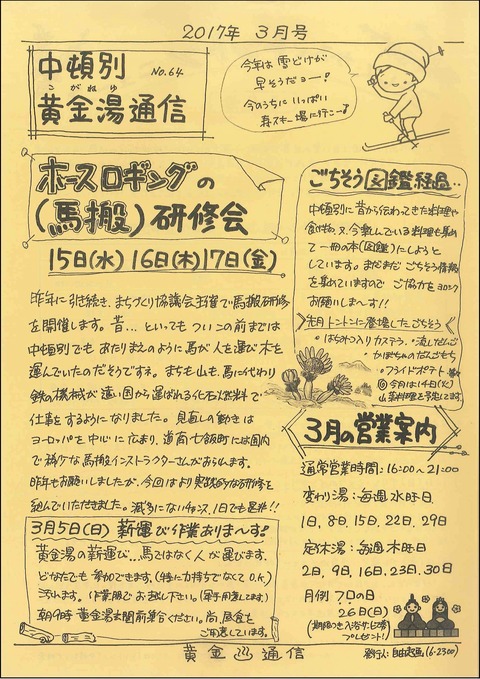 2017年 3月号
中頓別 No.64
こがねゆ
黄金湯通信
今年は雪どけが
早そうだョー!
今のうちに いっぱい
寿スキー場に行こー♪
ホースロギングの
(馬搬)研修会
15日(水) 16日(木) 17日(金)
昨年に引き続き、まちづくり協議会主催で馬搬研修
を開催します。昔…といっても ついこの前までは
中頓別でも あたりまえのように馬が人を運び木を
運んでいたのだそうですネ。まちも山も、馬に代わり
鉄の機械が遠い国から運ばれる化石燃料で
仕事をするようになりました。見直しの動きは
ヨーロッパを中心に広まり、道南七飯町には国内
で稀少な馬搬インストラクターさんがおられます。
昨年もお願いしましたが、今回はより実践的な研修を
組んでいただきました。滅多にないチャンス、1日でも是非!!
3月5日(日) 薪運び作業ありま〜す。
黄金湯の薪運び…馬ではなく人が運びます。
どなたでも参加できます。(特に力持ちでなくてO.K.)
汚れます。(作業服でお越し下さい。)(軍手用意してます)
朝9時 黄金湯玄関前集合ください。尚、昼食も
ご用意しています。
ごちそう図鑑経過‥
中頓別に昔から伝わってきた料理や
食材、又、今親しんでいる料理も集め
て一冊の本(図鑑)にしようと
しています。まだまだ ごちそう情報
を集めていますので ご協力をヨロシク
お願いしま〜す!!
先月トントンに登場したごちそう
・はちみつ入りカステラ ・流しだんご
・かぼちゃのだんごもち
・フライドポテト 等
◎今月は14日(火)
山菜料理を予定してます。
3月の営業案内
通常営業時間:16:00〜21:00
変わり湯:毎週水曜日
1日、8日、15日、22日、29日
定休湯:毎週木曜日
2日、9日、16日、23日、30日
月例 フロの日
26日(日)
(期限つき入浴サービス券
プレゼント!)
黄金♨通信
発行人:自由空感(6-2300)